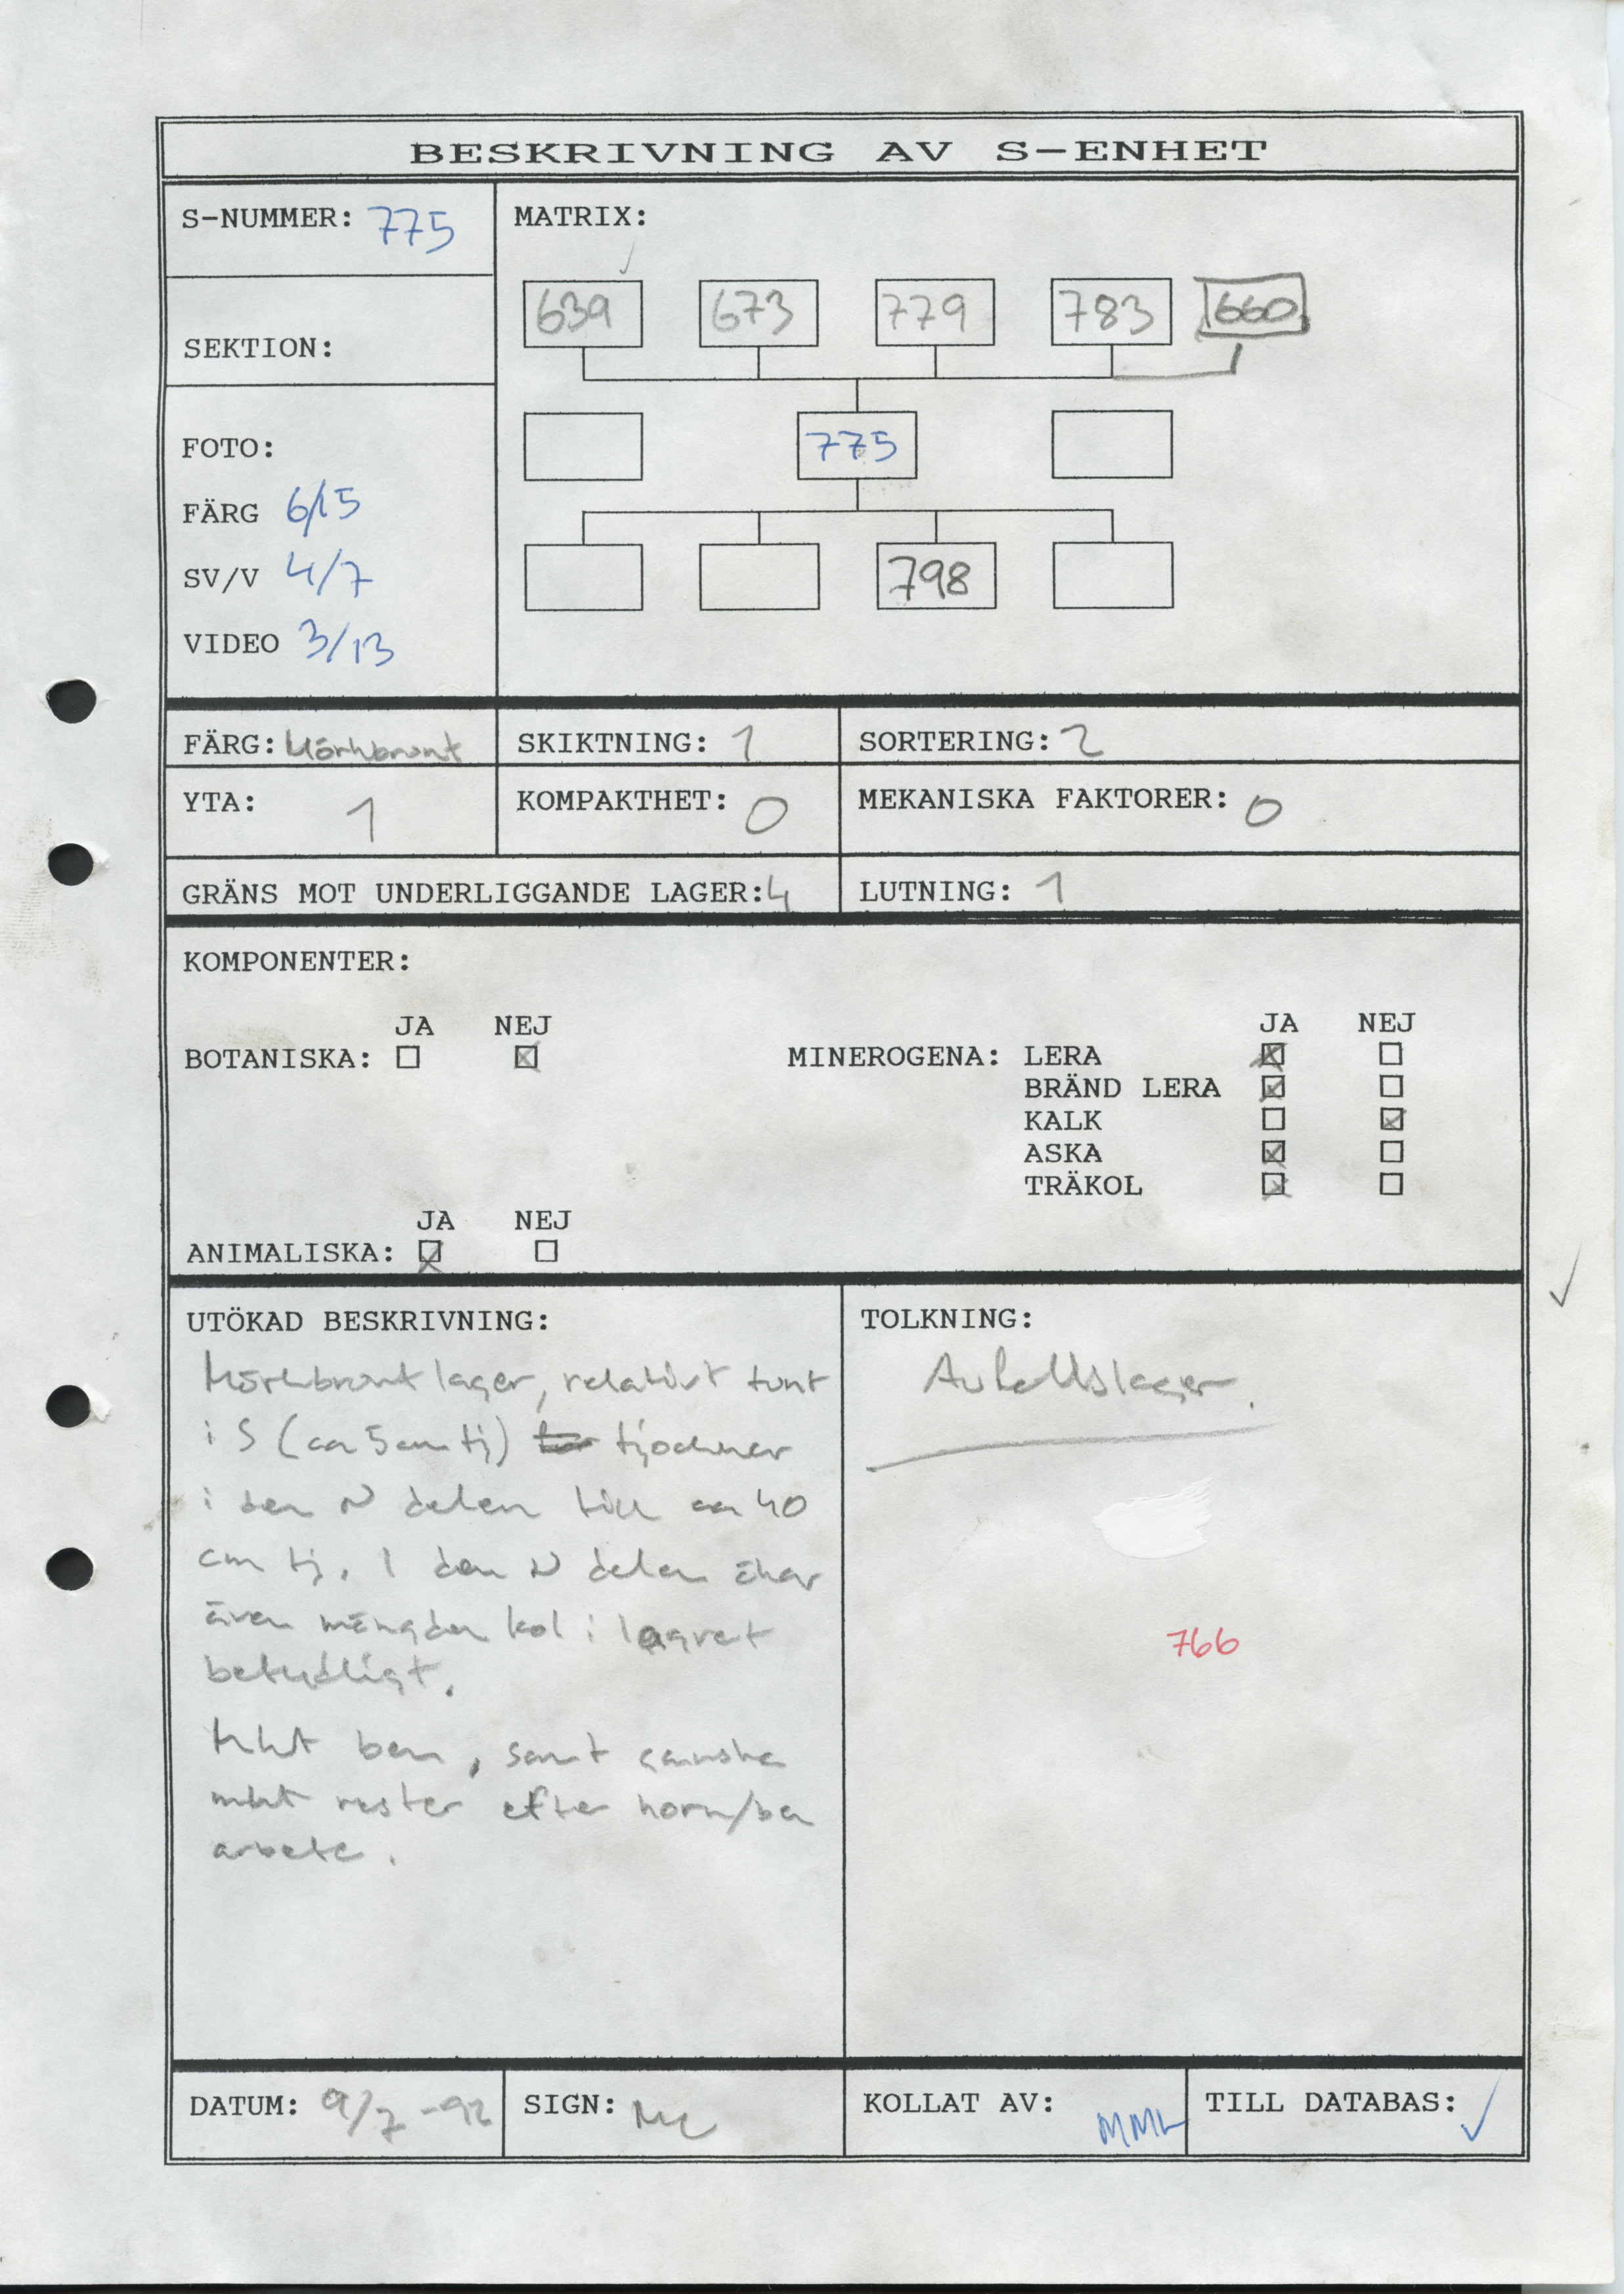 BESKRIVNING AV S-ENHET
S-NUMMER: 775
MATRIX:
639 673 779 783 660
SEKTION:
775
FOTO:
FÄRG 6/15
SV/V 4/7
798
VIDEO 3/13
FÄRG: Mörkbrunt
SKIKTNING: 1
SORTERING: 2
YTA: 1
KOMPAKTHET: 0
MEKANISKA FAKTORER: 0
GRÄNS MOT UNDERLIGGANDE LAGER: 4
LUTNING: 1
KOMPONENTER:
JA NEJ
BOTANISKA: ☐ ☒
JA NEJ
MINEROGENA: LERA ☒ ☐
BRÄND LERA ☒ ☐
KALK ☐ ☒
ASKA ☒ ☐
TRÄKOL ☒ ☐
JA NEJ
ANIMALISKA: ☒ ☐
UTÖKAD BESKRIVNING:
Mörkbrunt lager, relativt tunt
i S (ca 5 cm tj) tjocknar
i den N delen till ca 40
cm tj. I den N delen ökar
även mängden kol i lagret
betydligt.
Mkt ben, samt ganska
mkt rester efter horn/ben
arbete.
TOLKNING:
Avfallslager.
766
DATUM: 9/7 -92
SIGN:
KOLLAT AV: MML
TILL DATABAS: ✓